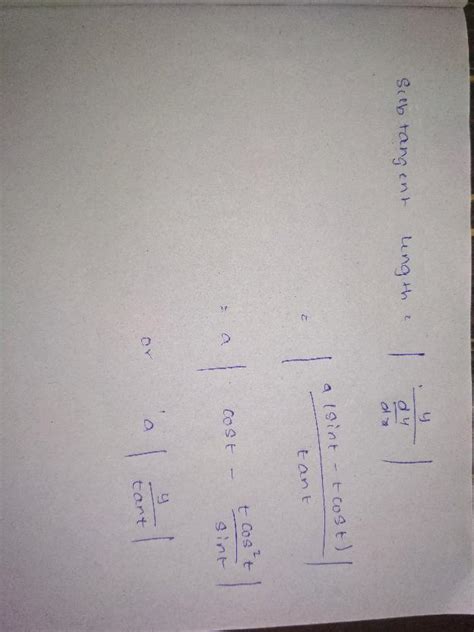 Subtangent length = | y / dy/dx |
= | a(sint - tcost) / tant |
= a | cost - tcos²t / sint |
or a | y / tant |